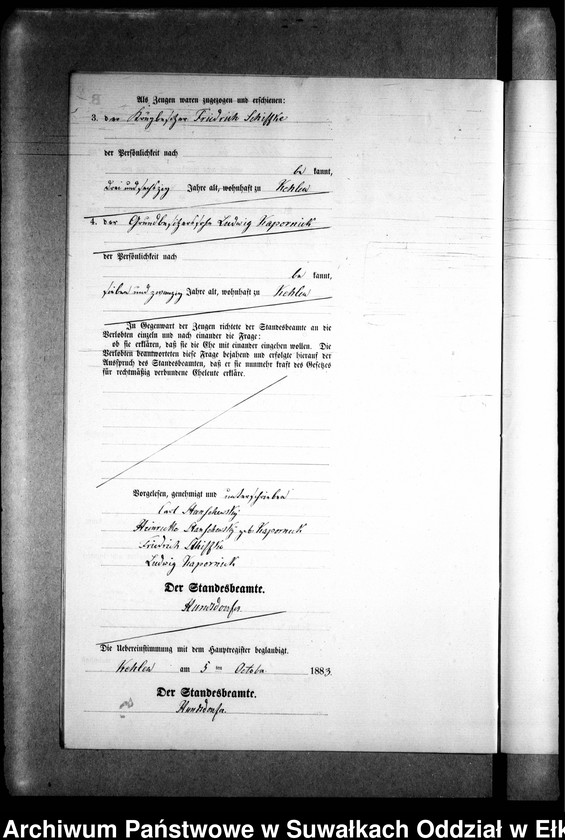 Als Zeugen waren zugezogen und erschienen:
3. der Krugbesitzer Friedrich Schiffke
der Persönlichkeit nach
be kannt,
drei und sechszig Jahre alt, wohnhaft zu Kehlen
4. der Grundbesitzersohn Ludwig Kapornick
der Persönlichkeit nach
be kannt,
sieben und zwanzig Jahre alt, wohnhaft zu Kehlen
In Gegenwart der Zeugen richtete der Standesbeamte an die
Verlobten einzeln und nach einander die Frage:
ob sie erklären, daß sie die Ehe mit einander eingehen wollen. Die
Verlobten beantworteten diese Frage bejahend und erfolgte hierauf der
Ausspruch des Standesbeamten, daß er sie nunmehr kraft des Gesetzes
für rechtmäßig verbundene Eheleute erkläre.
Vorgelesen, genehmigt und unterschrieben
Carl
Heinriette geb. Kapornick
Friedrich Schiffke
Ludwig Kapornick
Der Standesbeamte.
Die Uebereinstimmung mit dem Hauptregister beglaubigt.
Kehlen am 5 ten October 1883.
Der Standesbeamte.
Archiwum Państwowe w Suwałkach Oddział w Ełk